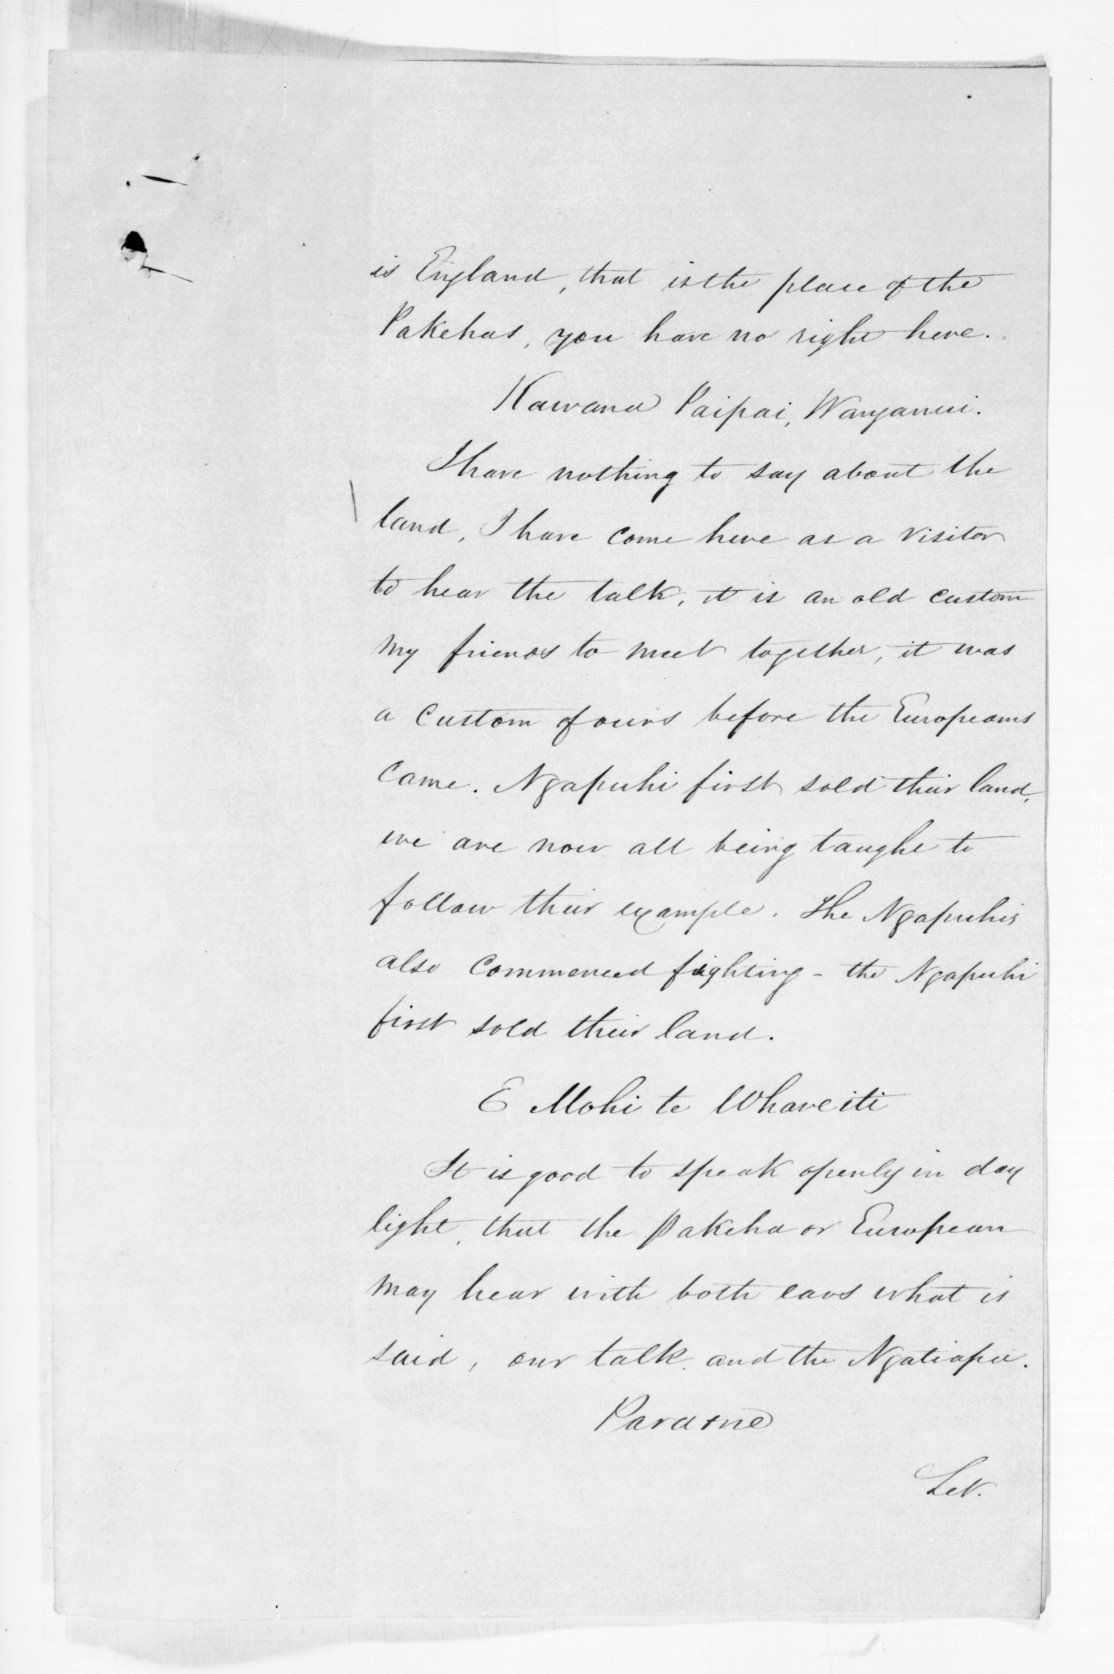 is England, that is the place of the
Pakehas, you have no right here.
Kawana Paipai, Wanganui.
I have nothing to say about the
land, I have come here as a visitor
to hear the talk, it is an old custom
my friends to meet together, it was
a custom of ours before the Europeans
came. Ngapuhi first sold their land,
we are now all being taught to
follow their example. The Ngapuhis
also commenced fighting - the Ngapuhi
first sold their land.
E Mohi te Whareiti
It is good to speak openly in day
light, that the Pakeha or European
may hear with both ears what is
said, our talk and the Ngatiapa.
Paratne
Let.